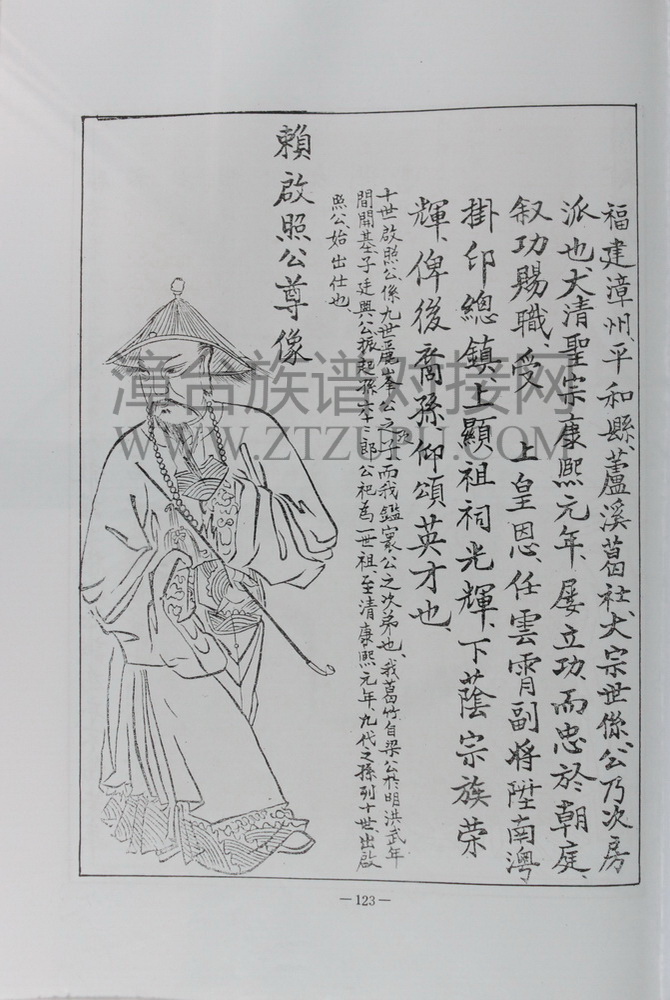 福建漳州、平和縣、蘆溪葛社、大宗世係、公乃次房
派也、大清聖宗康熙元年、屢立功、而忠於朝庭、
叙功賜職、受 上皇恩、任雲霄副將、陞南粵
掛印總鎮、上顯祖祠光輝、下蔭宗族榮
輝、俾後裔孫、仰頌英才也、
十世啟照公、係九世 峯公之子、而我鑑寰公之次弟也、我葛竹自梁公於明洪武年
間開基、子廷與公振起、孫六十三郎公祀為一世祖、至清康熙元年、九代之孫列十世、出啟
照公、始出仕也、
賴啟照公尊像
漳台族谱对接网
WWW.ZTZUPU.COM
—123—